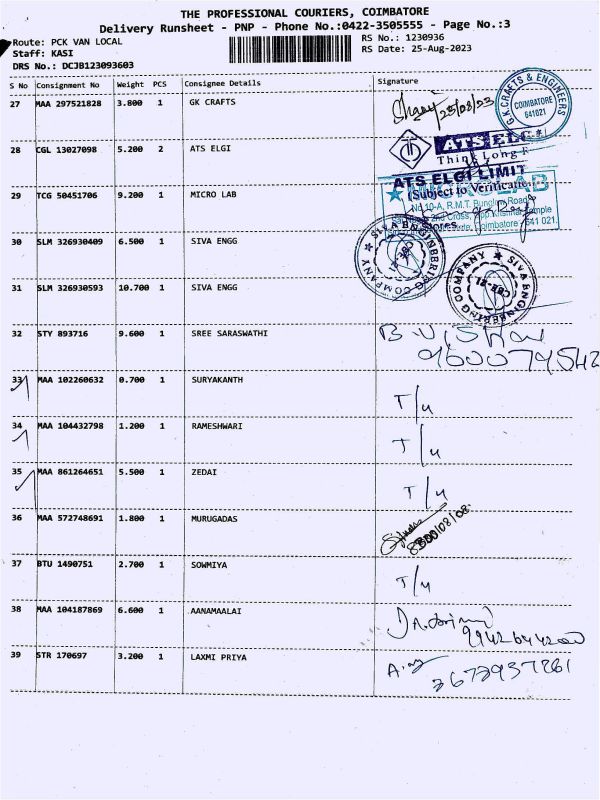 THE PROFESSIONAL COURIERS, COIMBATORE
Delivery Runsheet - PNP - Phone No.:0422-3505555 - Page No.:3
Route: PCK VAN LOCAL
RS No.: 1230936
Staff: KASI
RS Date: 25-Aug-2023
DRS No.: DCJB123093603
S No Consignment No Weight PCS Consignee Details Signature
27 MAA 297521828 3.800 1 GK CRAFTS
25/08/23
G.K.CRAFTS & ENGINEERS COIMBATORE 641021
28 CGL 13027098 5.200 2 ATS ELGI
ATS ELGI
Think Long
ATS ELGI LIMIT
(Subject to Verification
29 TCG 50451706 9.200 1 MICRO LAB
LAB
No.10-A, R.M.T. Bunglow Road
2nd Cross,
Coimbatore - 641 021.
30 SLM 326930409 6.500 1 SIVA ENGG
SIVA ENGINEERING COMPANY CBE-21
31 SLM 326930593 10.700 1 SIVA ENGG
SIVA ENGINEERING COMPANY CBE-21
32 STY 893716 9.600 1 SREE SARASWATHI
33 MAA 102260632 0.700 1 SURYAKANTH
T/4
34 MAA 104432798 1.200 1 RAMESHWARI
T/4
35 MAA 861264651 5.500 1 ZEDAI
T/4
36 MAA 572748691 1.800 1 MURUGADAS
37 BTU 1490751 2.700 1 SOWMIYA
T/4
38 MAA 104187869 6.600 1 AANAMAALAI
39 STR 170697 3.200 1 LAXMI PRIYA